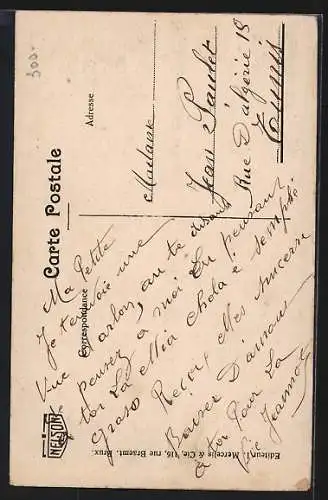 Carte Postale
Correspondance
Adresse
300.-
Madame
Jean Paulet
Rue D'algérie 18
Tunis
Ma Petite
Je t'envoie une
Vue d'arlon, au te disant
pensez a moi En pensant
toi La Mia chola è semphé
graso Reçoit Mes sincères
Baiser D'amour
a toi Pour La
Vie Jeannot
NELS
Edition J. Mercelis & Cie, 116, rue Braemt, Brux.